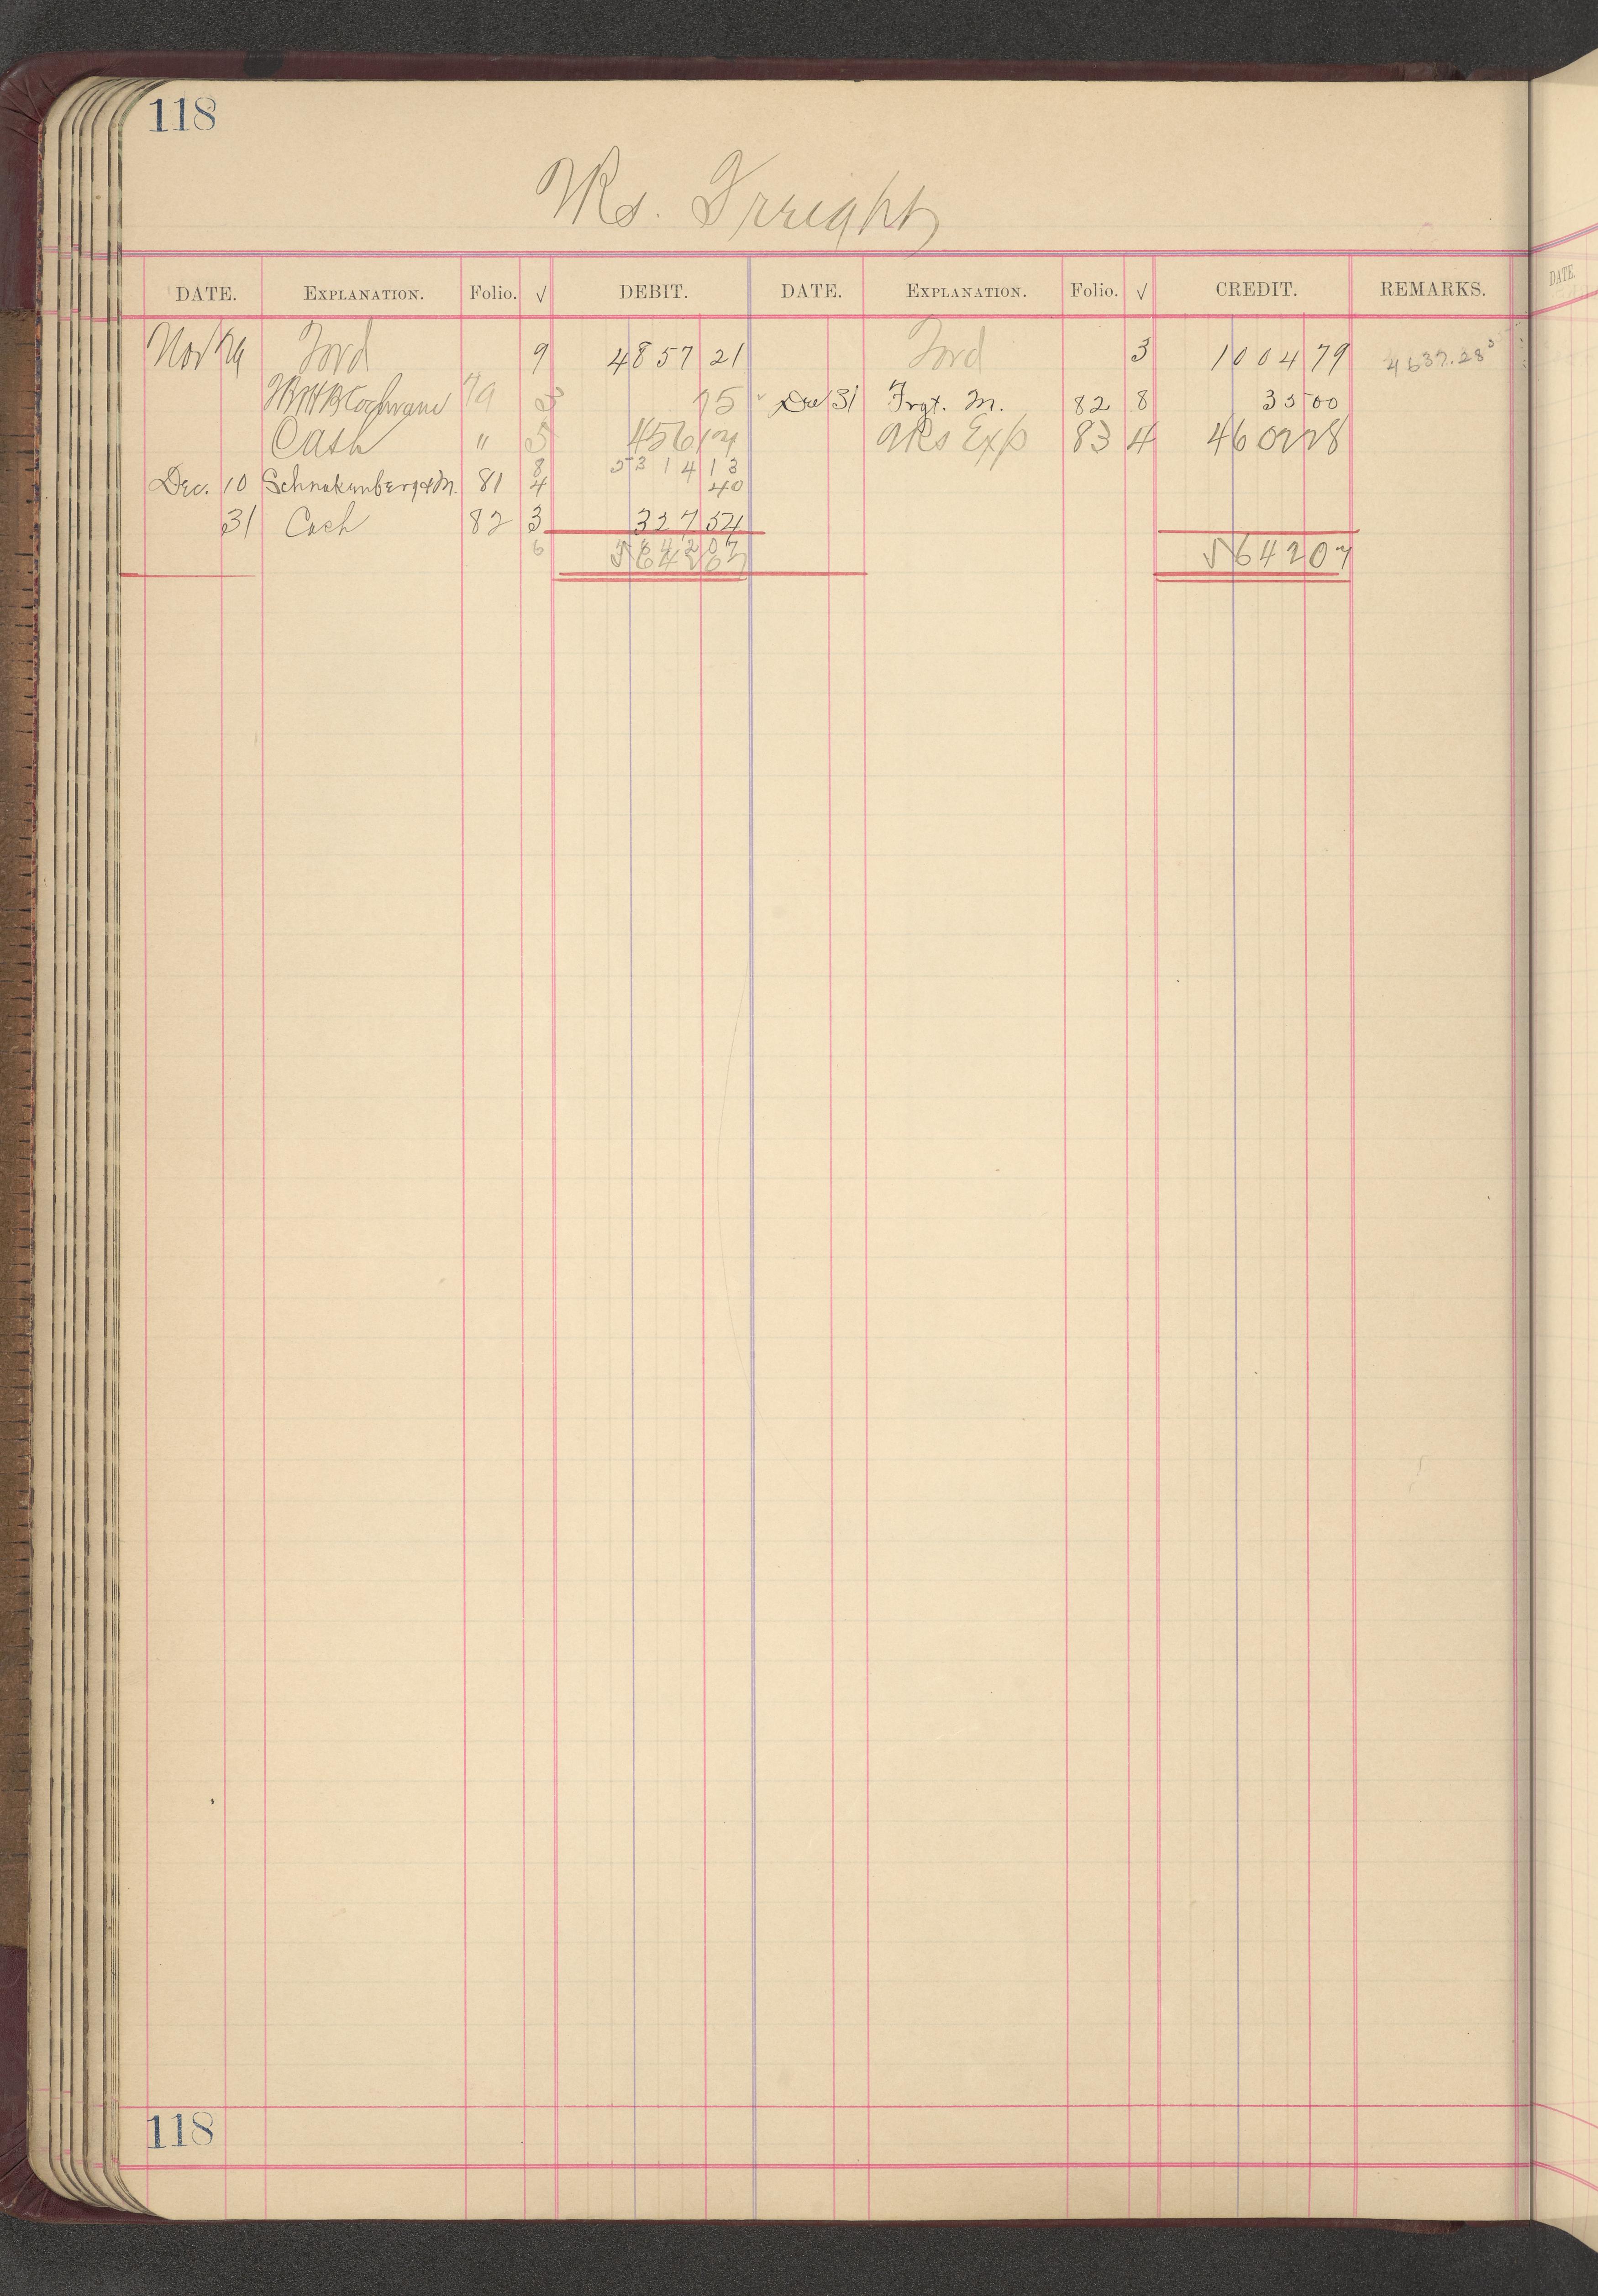 118
Freight
DATE. EXPLANATION. Folio. √ DEBIT. DATE. EXPLANATION. Folio. √ CREDIT. REMARKS.
Nov 29 Ford 9 4857 21 Ford 3 1004 79 4637.28
Cochrane 79 3 75 Dec 31 Frgt. M. 82 8 35 00
Cash " 5 456 17 Exp 83 4 4602 28
8 5314 13
Dec. 10 Schnakenberg & M. 81 4 40
31 Cash 82 3 327 54
6 5642 07
5642 07 5642 07
118